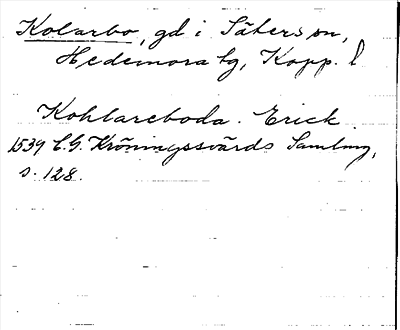 Kolarbo, gd i Säters sn,
Hedemora tg, Kopp. l
Kohlareboda. Erick
1539 C.G. Kröningssvärds Samling,
s. 128.